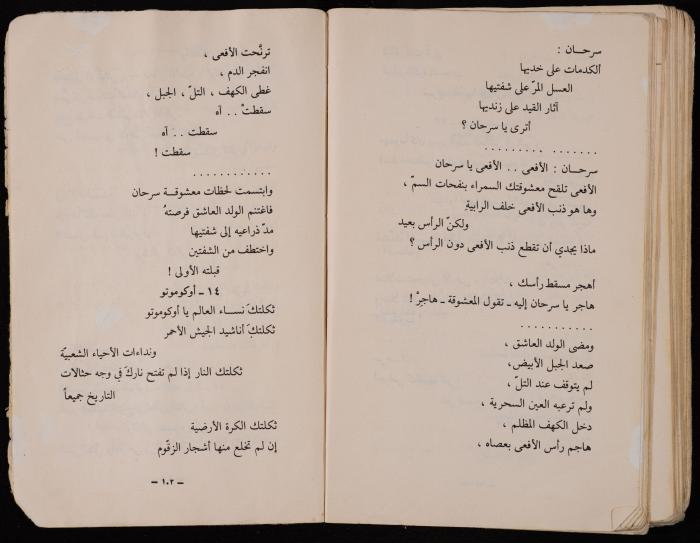 سرحـان :
ألكدمات على خديها
العسل المرّ على شفتيها
آثار القيد على زنديها
أترى يا سرحان ؟
....... .........
سرحـان : الأفعى .. الأفعى يا سرحان
الأفعى تلقح معشوقتك السمراء بنفحات السمّ ،
وها هو ذنب الأفعى خلف الرابيةِ
ولكنّ الرأس بعيد
ماذا يجدي أن تقطع ذنب الأفعى دون الرأس ؟
أهجر مسقط رأسك ،
هاجر يا سرحان إليه ـ تقول المعشوقة ـ هاجرْ !
...........
ومضى الولد العاشق ،
صعد الجبل الأبيض،
لم يتوقف عند التلّ ،
ولم ترعبه العين السحرية ،
دخل الكهف المظلم ،
هاجم رأس الأفعى بعصاه ،
ترنَّحت الأفعى ،
انفجر الدم ،
غطى الكهف ، التلّ ، الجبل ،
سقطتْ .. آه
سقطت .. آه
سقطت !
............
وابتسمت لحظات معشوقـة سرحان
فاغتنم الولد العاشق فرصتهُ
مدّ ذراعيه إلى شفتيها
واختطف من الشفتين
قبلته الأولى !
١٤ ـ أوكوموتو
ثكلتكَ نسـاء العالم يا أوكوموتو
ثكلتكَ أناشيد الجيش الأحمر
ونداءات الأحياء الشعبيّة
ثكلتك النار إذا لم تفتح ناركَ في وجه حثالات
التاريخ جميعاً
ثكلتك الكرة الأرضية
إن لم تخلع منها أشجار الزقّوم
ـ ١٠٢ ـ